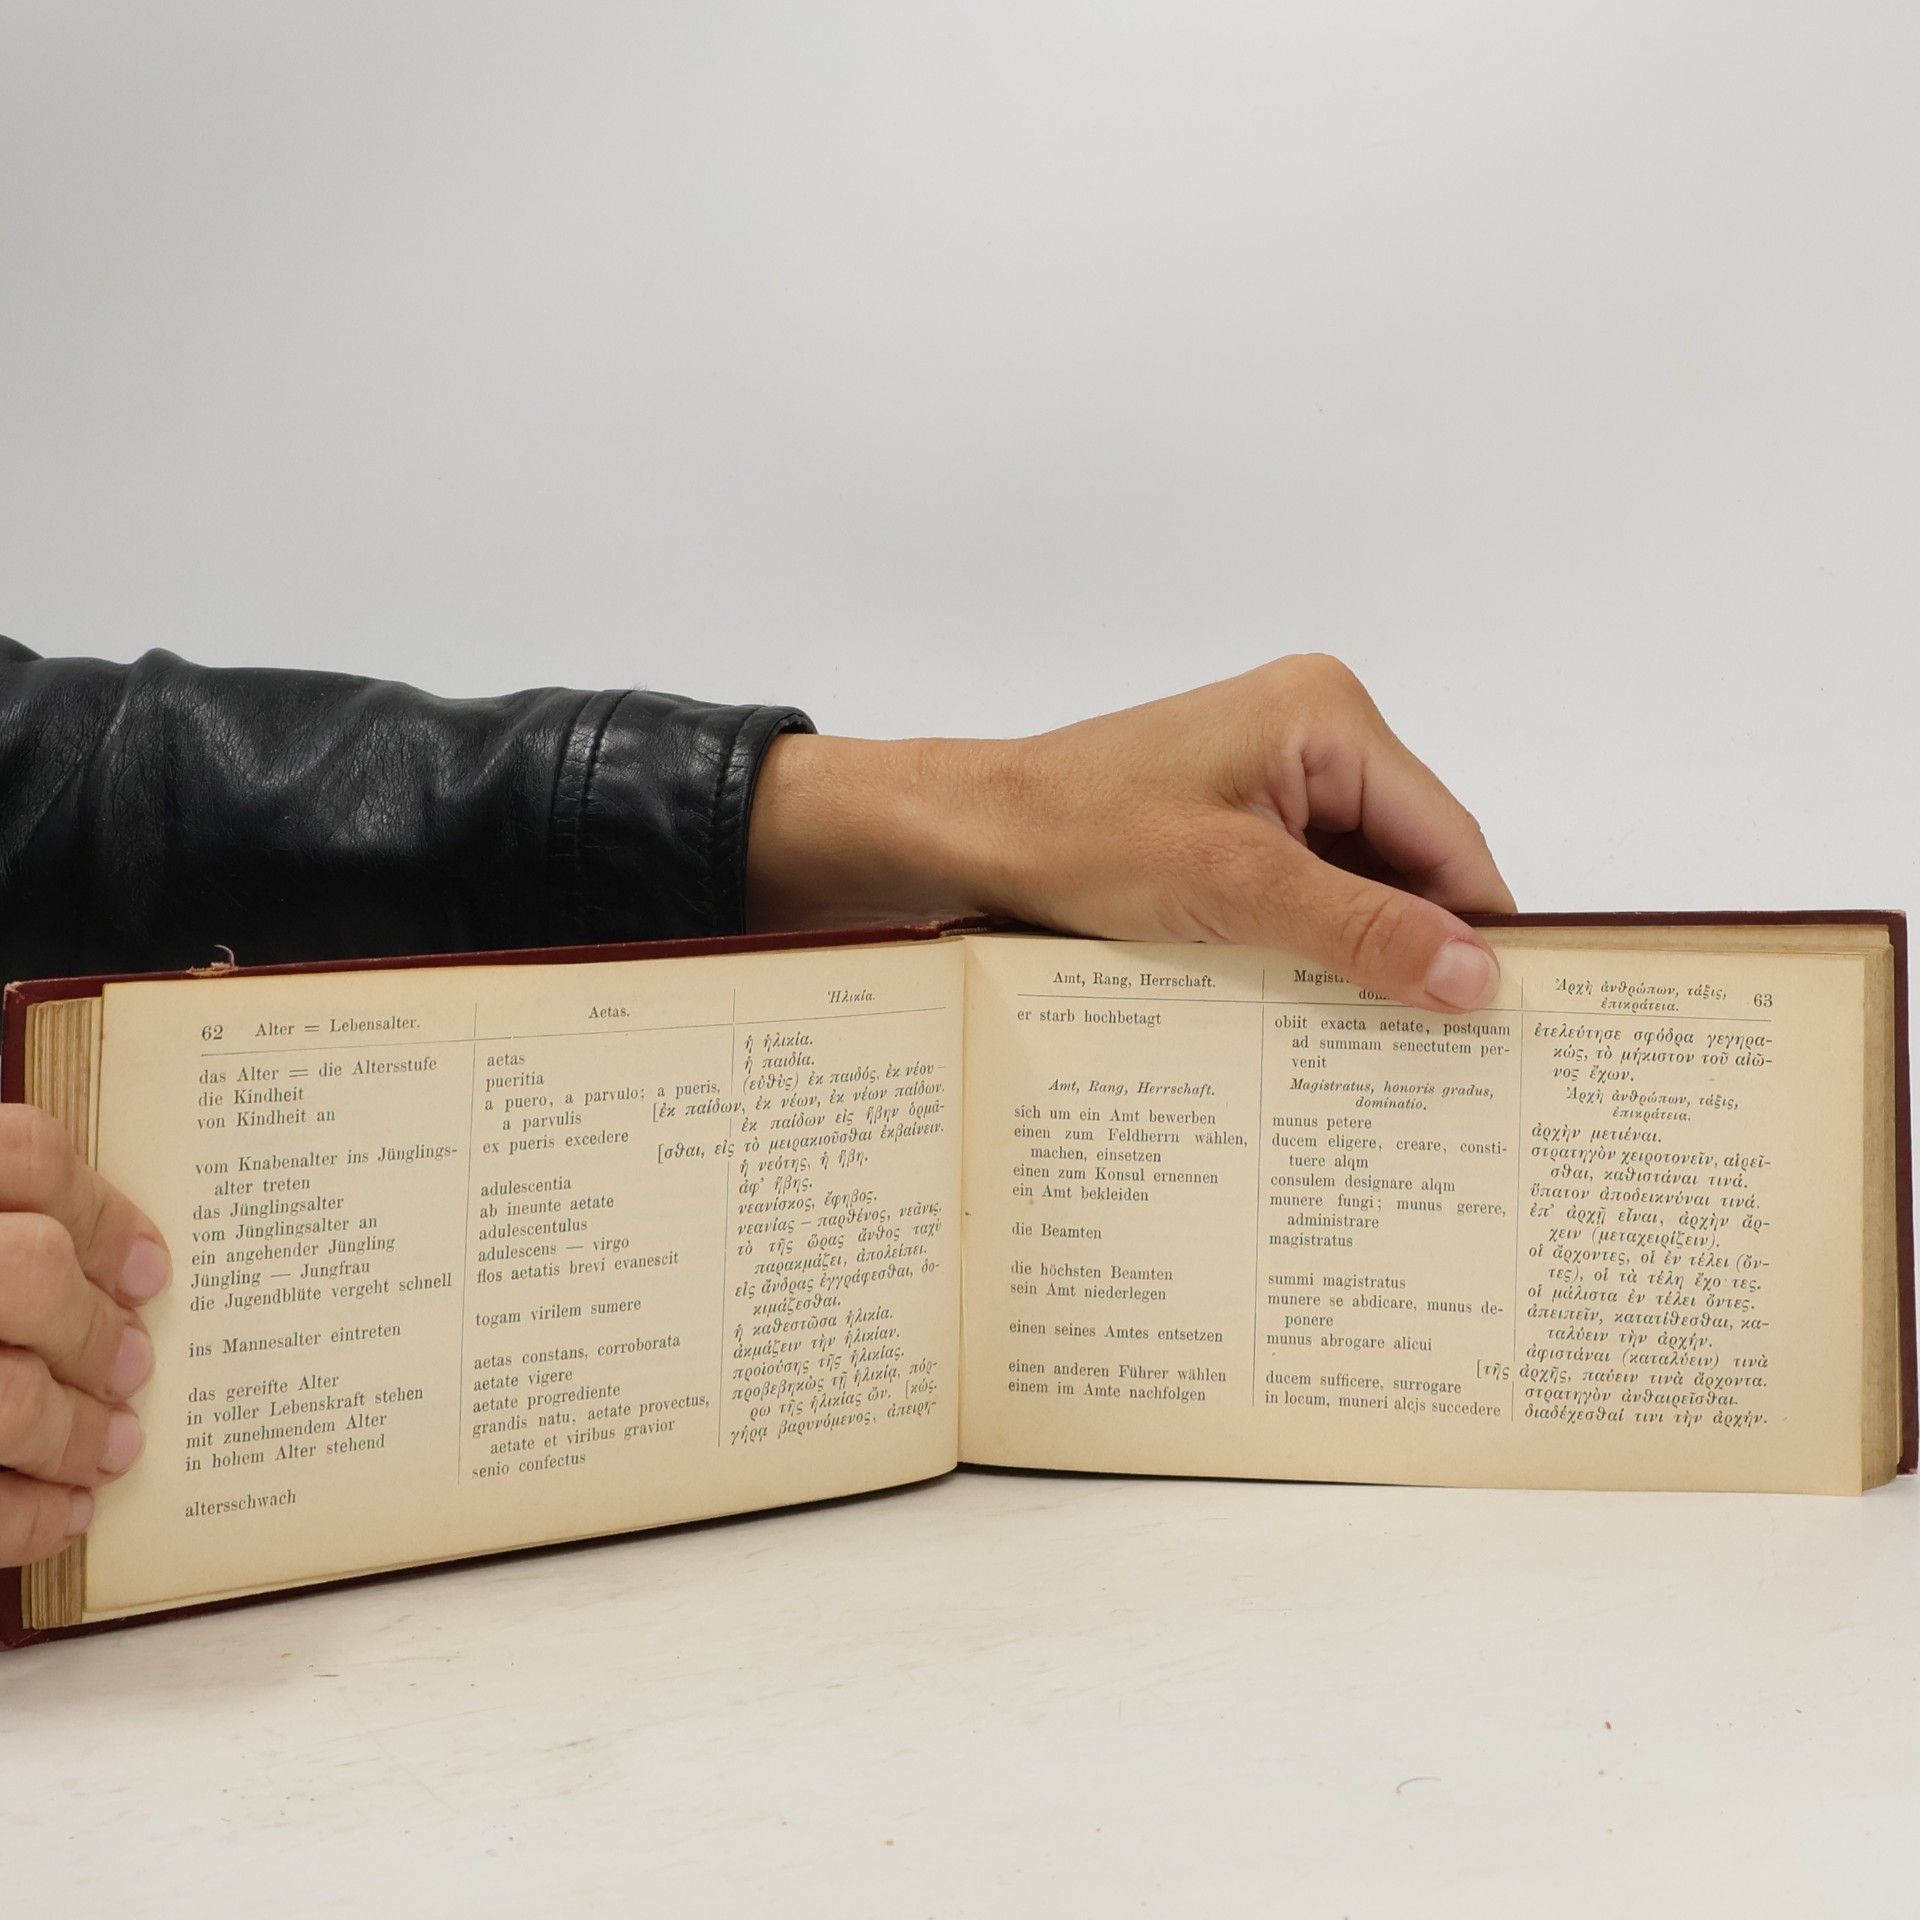 62 Alter = Lebensalter.
das Alter = die Altersstufe
die Kindheit
von Kindheit an
vom Knabenalter ins Jünglings-
alter treten
das Jünglingsalter
vom Jünglingsalter an
ein angehender Jüngling
Jüngling — Jungfrau
die Jugendblüte vergeht schnell
ins Mannesalter eintreten
das gereifte Alter
in voller Lebenskraft stehen
mit zunehmendem Alter
in hohem Alter stehend
altersschwach
Aetas.
aetas
pueritia
a puero, a parvulo; a pueris,
a parvulis
ex pueris excedere
adulescentia
ab ineunte aetate
adulescentulus
adulescens — virgo
flos aetatis brevi evanescit
togam virilem sumere
aetas constans, corroborata
aetate vigere
aetate progrediente
grandis natu, aetate provectus,
aetate et viribus gravior
senio confectus
Ἡλικία.
ἡ ἡλικία.
ἡ παιδία.
(εὐθὺς) ἐκ παιδός, ἐκ νέου–
[ἐκ παίδων, ἐκ νέων, ἐκ νέων παίδων.
ἐκ παίδων εἰς ἥβην ὁρμᾶ-
[σθαι, εἰς τὸ μειρακιοῦσθαι ἐκβαίνειν.
ἡ νεότης, ἡ ἥβη.
ἀφ' ἥβης.
νεανίσκος, ἔφηβος.
νεανίας – παρθένος, νεᾶνις.
τὸ τῆς ὥρας ἄνθος ταχὺ
παρακμάζει, ἀπολείπει.
εἰς ἄνδρας ἐγγράφεσθαι, δο-
κιμάζεσθαι.
ἡ καθεστῶσα ἡλικία.
ἀκμάζειν τὴν ἡλικίαν.
προϊούσης τῆς ἡλικίας.
προβεβηκὼς τῇ ἡλικίᾳ, πόρ-
ρω τῆς ἡλικίας ὤν. [κώς.
γήρᾳ βαρυνόμενος, ἀπειρη-
Amt, Rang, Herrschaft.
er starb hochbetagt
Amt, Rang, Herrschaft.
sich um ein Amt bewerben
einen zum Feldherrn wählen,
machen, einsetzen
einen zum Konsul ernennen
ein Amt bekleiden
die Beamten
die höchsten Beamten
sein Amt niederlegen
einen seines Amtes entsetzen
einen anderen Führer wählen
einem im Amte nachfolgen
obiit exacta aetate, postquam
ad summam senectutem per-
venit
Magistratus, honoris gradus,
dominatio.
munus petere
ducem eligere, creare, consti-
tuere alqm
consulem designare alqm
munere fungi; munus gerere,
administrare
magistratus
summi magistratus
munere se abdicare, munus de-
ponere
munus abrogare alicui
ducem sufficere, surrogare
in locum, muneri alcjs succedere
Ἀρχὴ ἀνθρώπων, τάξις, 63
ἐπικράτεια.
ἐτελεύτησε σφόδρα γεγηρα-
κώς, τὸ μήκιστον τοῦ αἰῶ-
νος ἔχων.
Ἀρχὴ ἀνθρώπων, τάξις,
ἐπικράτεια.
ἀρχὴν μετιέναι.
στρατηγὸν χειροτονεῖν, αἱρεῖ-
σθαι, καθιστάναι τινά.
ὕπατον ἀποδεικνύναι τινά.
ἐπ' ἀρχῇ εἶναι, ἀρχὴν ἄρ-
χειν (μεταχειρίζειν).
οἱ ἄρχοντες, οἱ ἐν τέλει (ὄν-
τες), οἱ τὰ τέλη ἔχοντες.
οἱ μάλιστα ἐν τέλει ὄντες.
ἀπειπεῖν, κατατίθεσθαι, κα-
ταλύειν τὴν ἀρχήν.
ἀφιστάναι (καταλύειν) τινὰ
[τῆς ἀρχῆς, παύειν τινὰ ἄρχοντα.
στρατηγὸν ἀνθαιρεῖσθαι.
διαδέχεσθαί τινι τὴν ἀρχήν.